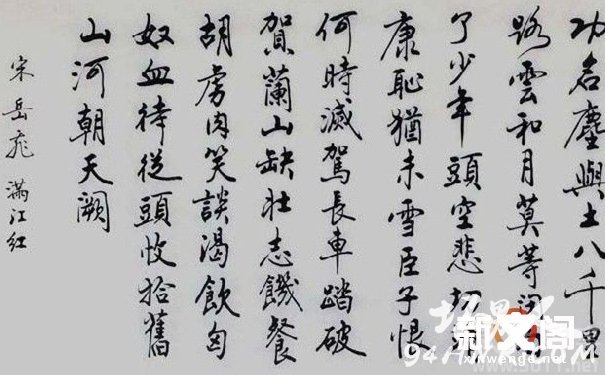 功名塵與土八千里
路雲和月莫等閑
了少年頭空悲切
康恥猶未雪臣子恨
何時滅駕長車踏破
賀蘭山缺壯志饑餐
胡虜肉笑談渴飲匈
奴血待從頭收拾舊
山河朝天闕
宋岳飛滿江红
新文阁
xinwenge.net